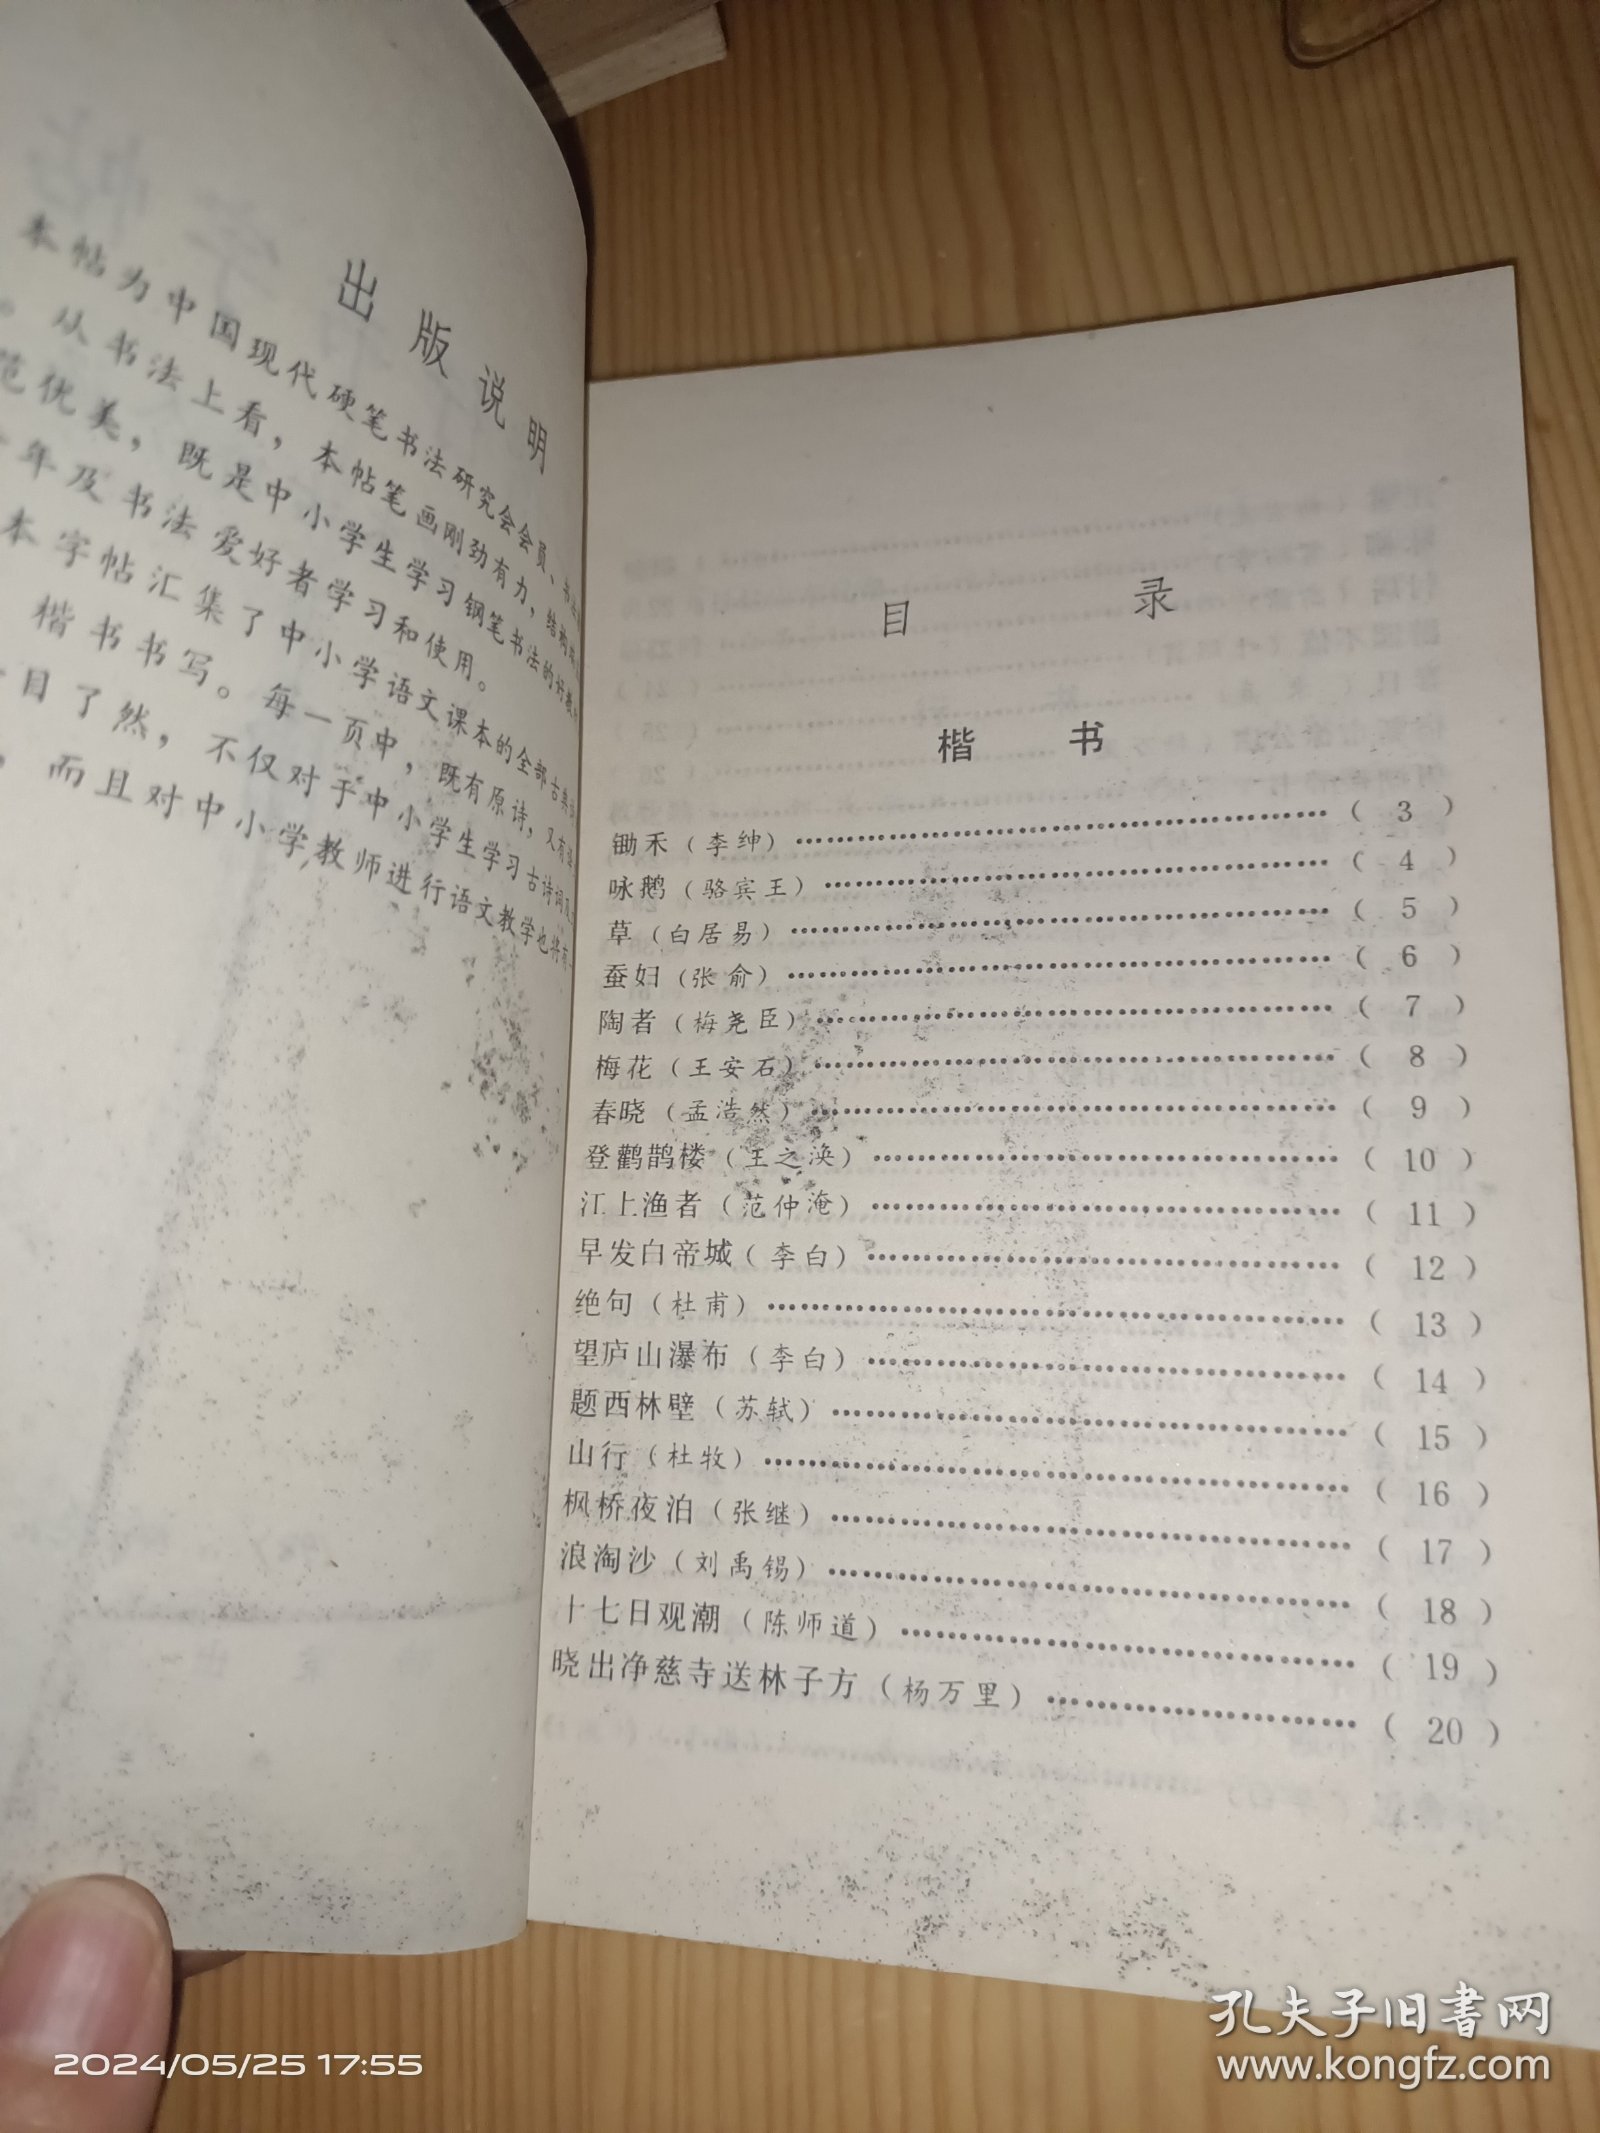 出版说明
本帖为中国现代硬笔书法研究会会员、
从书法上看，本帖笔画刚劲有力，结构
优美，既是中小学生学习钢笔书法的好教
年及书法爱好者学习和使用。
本字帖汇集了中小学语文课本的全部古典
楷书书写。每一页中，既有原诗，又有
目了然，不仅对于中小学生学习古诗词
，而且对中小学教师进行语文教学也将有
目录
楷书
锄禾（李绅）……（3）
咏鹅（骆宾王）……（4）
草（白居易）……（5）
蚕妇（张俞）……（6）
陶者（梅尧臣）……（7）
梅花（王安石）……（8）
春晓（孟浩然）……（9）
登鹳鹊楼（王之涣）……（10）
江上渔者（范仲淹）……（11）
早发白帝城（李白）……（12）
绝句（杜甫）……（13）
望庐山瀑布（李白）……（14）
题西林壁（苏轼）……（15）
山行（杜牧）……（16）
枫桥夜泊（张继）……（17）
浪淘沙（刘禹锡）……（18）
十七日观潮（陈师道）……（19）
晓出净慈寺送林子方（杨万里）……（20）
孔夫子旧书网
www.kongfz.com
2024/05/25 17:55